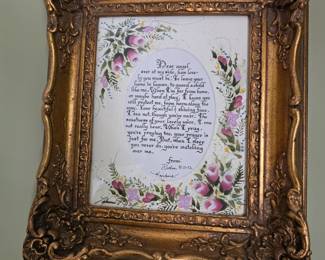 Dear angel,
ever at my side, how lovely
you must be. To leave your
home in heaven, to guard a child
like me. When I'm far from home,
or maybe hard at play, I know you
will protect me, from harm along the
way. Your beautiful & shining face,
I see not, though you're near. The
sweetness of your lovely voice, I can
not really hear. When I pray,
you're praying too, your prayer is
just for me. But, when I sleep
you never do, you're watching
over me.
from: